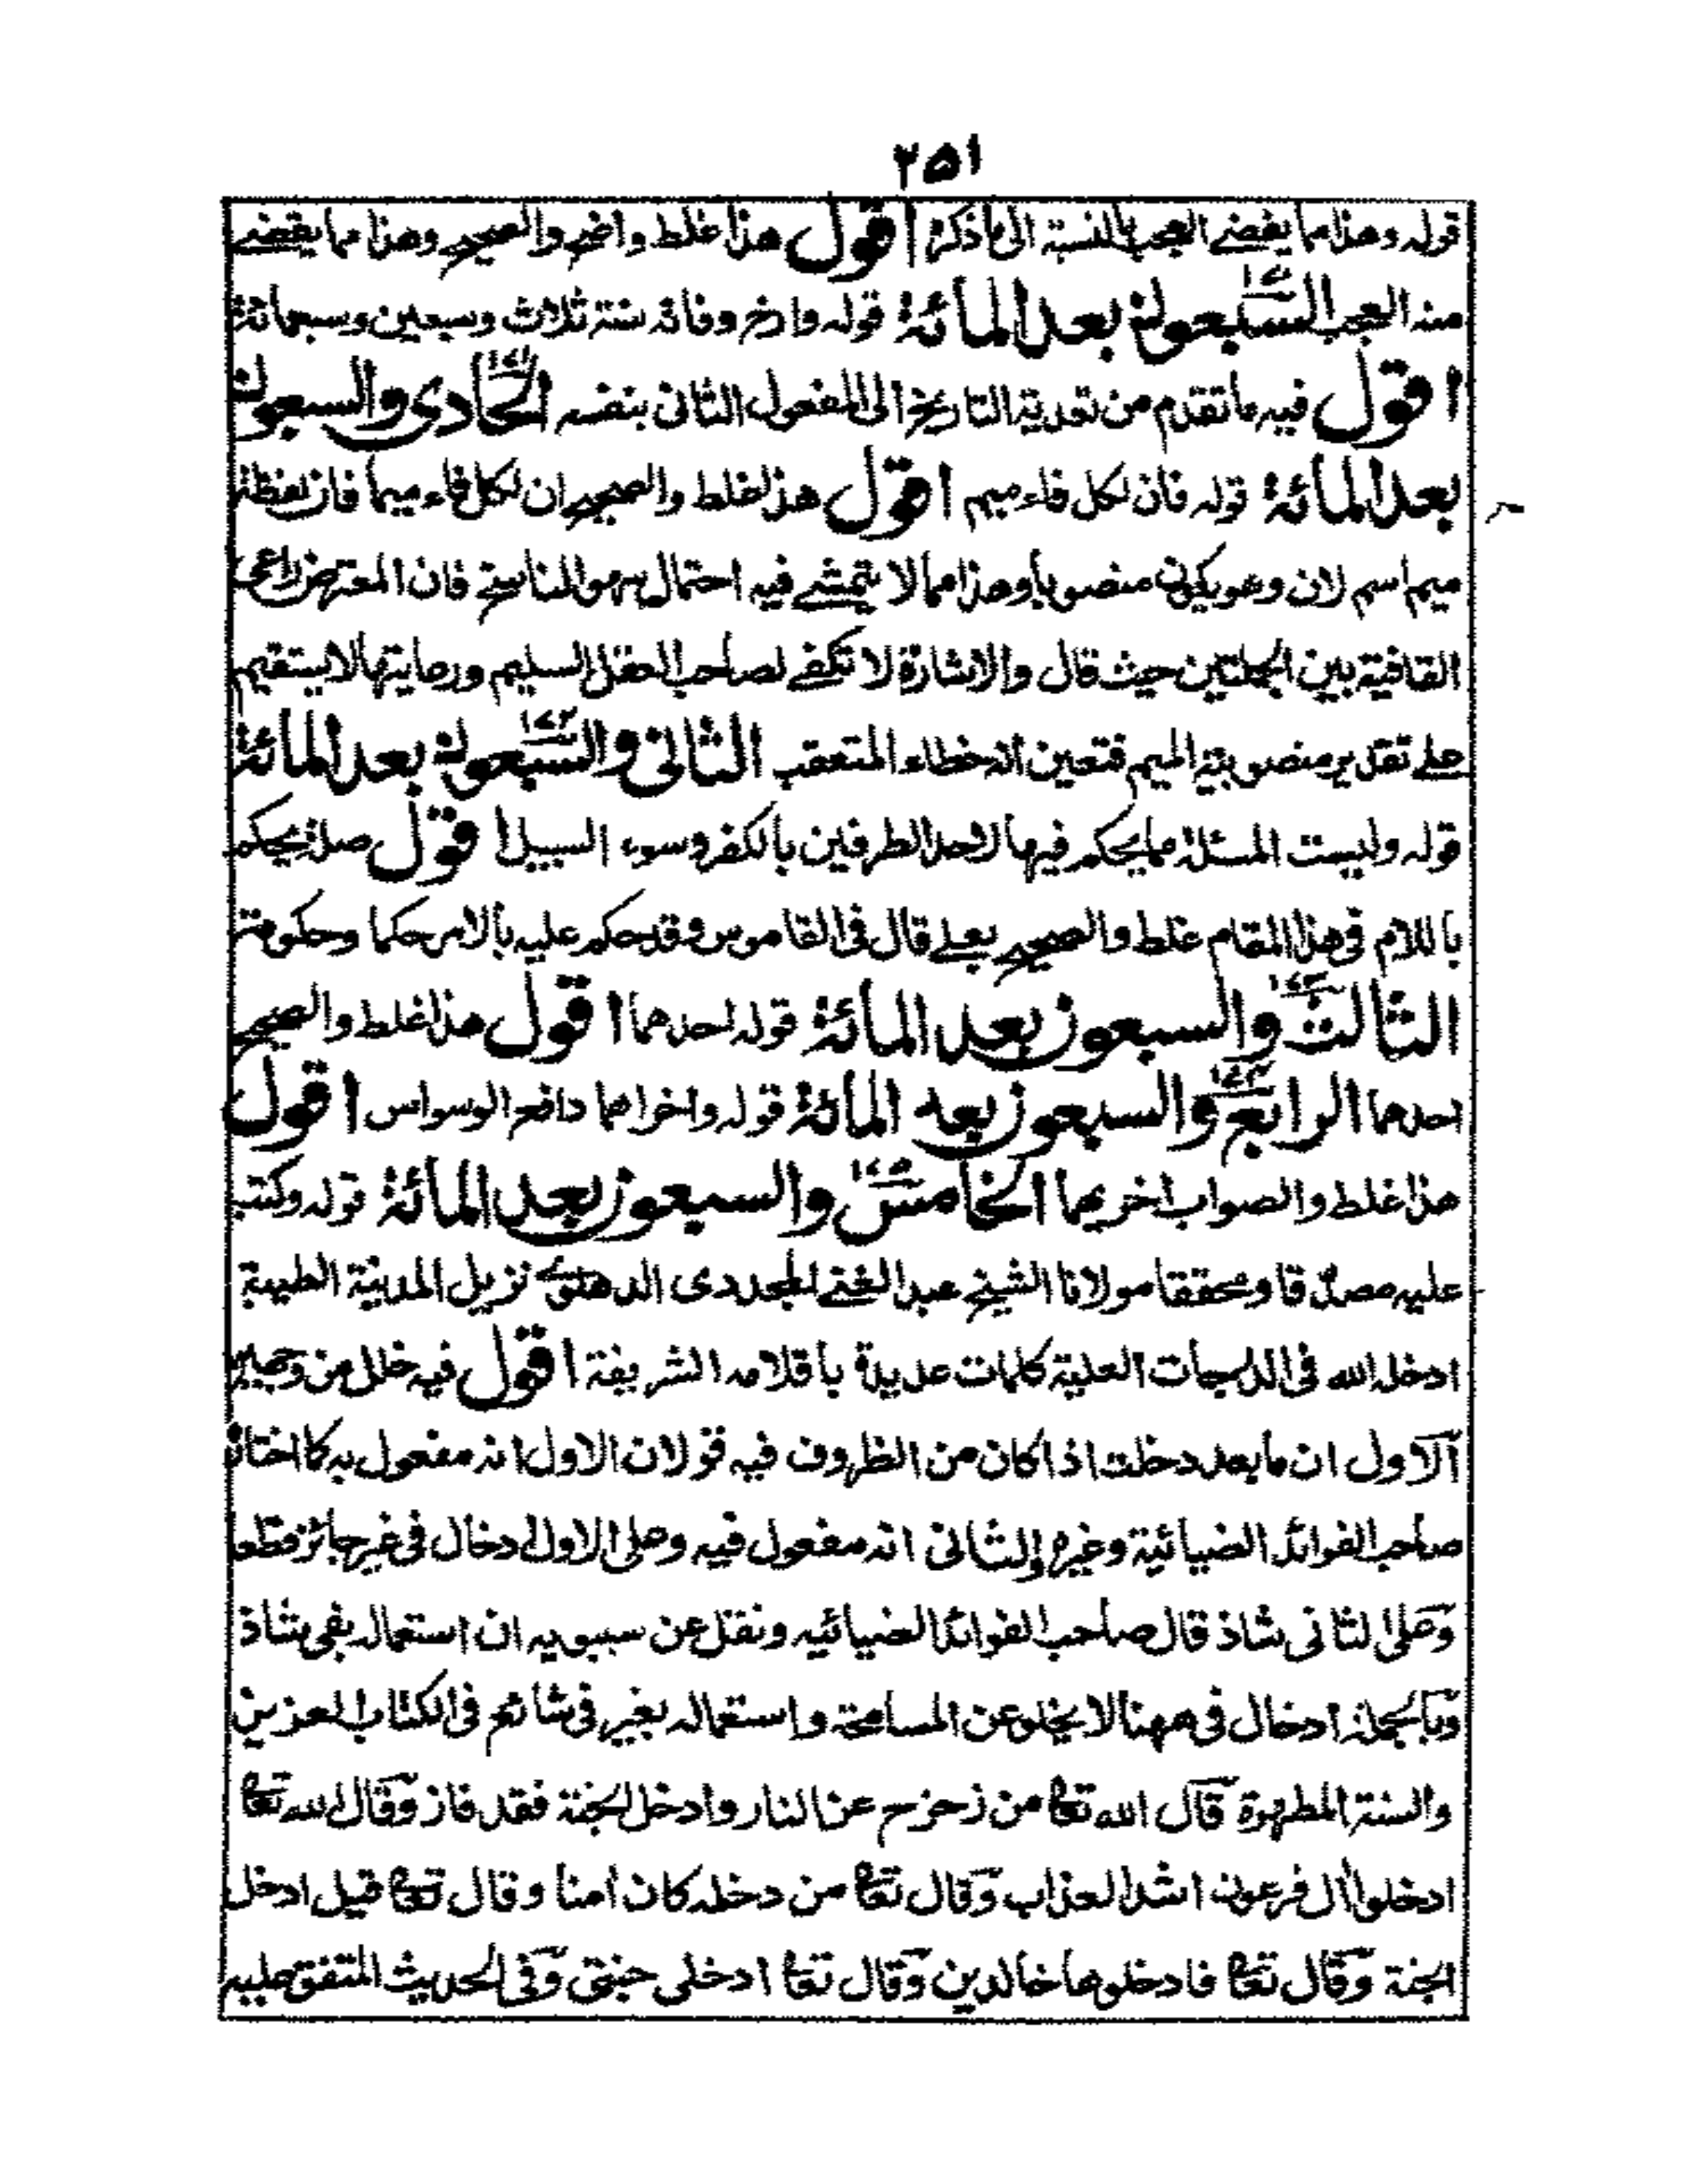 ٢٥١
قوله وهذا مما يفضي العجب بالنسبة الى ما ذكره اقول هذا غلط واضح والصحيح وهذا مما يقضي
منه العجب السبعون بعد المأئة قوله وارخ وفاته سنة ثلاث وسبعين وسبعمائة
اقول فيه ما تقدم من تعدية التاريخ الى المفعول الثانى بنفسه الحادى والسبعون
بعد المأئة قوله فان لكل فاء ميم اقول هذا غلط والصحيح ان لكل فاء ميما فان لفظة
ميم اسم لان وهو يكون منصوبا وهذا مما لا يتمشى فيه احتمال سهو الناسخ فان المعترض راعى
القافية بين الجملتين حيث قال والاشارة لا تكفي لصاحب العقل السليم ورعايتها لا يستقيم
على تقدير منصوبية الميم فتعين انه خطاء المتعقب الثانى والسبعون بعد المأئة ١٧٢
قوله وليست المسئلة مما يحكم فيها لاحد الطرفين بالكفر وسوء السبيل اقول صلة يحكم
باللام فى هذا المقام غلط والصحيح بعلى قال فى القاموس وقد حكم عليه بالامر حكما وحكومة
الثالث والسبعون بعد المأئة قوله احدهما اقول هذا غلط والصحيح
احدهما الرابع والسبعون بعد المأئة قوله واخراهما دافع الوسواس اقول
هذا غلط والصواب اخريهما الخامس والسبعون بعد المأئة ١٧٥ قوله وكتب
عليه مصدقا ومحققا مولانا الشيخ عبد الغنى المجددى الدهلوى نزيل المدينة الطيبة
ادخله الله فى الدرجات العلية كلمات عديدة باقلامه الشريفة اقول فيه خلل من وجهين
الاول ان ما بعد دخلت اذا كان من الظروف فيه قولان الاول انه مفعول به كما اختاره
صاحب الفوائد الضيائية وغيره والثانى انه مفعول فيه وعلى الاول ادخال فى غير جائز قطعا
وعلى الثانى شاذ قال صاحب الفوائد الضيائيه ونقل عن سيبويه ان استعماله بفى شاذ
وبالجملة ادخال فى ههنا لا يخلو عن المسامحة واستعماله بغير فى شائع فى الكتاب العزيز
والسنة المطهرة قال الله تعا من زحزح عن النار وادخل الجنة فقد فاز وقال الله تعا
ادخلوا آل فرعون اشد العذاب وقال تعا من دخله كان امنا وقال تعا قيل ادخل
الجنة وقال تعا فادخلوها خالدين وقال تعا ادخلى جنتى وفى الحديث المتفق عليه